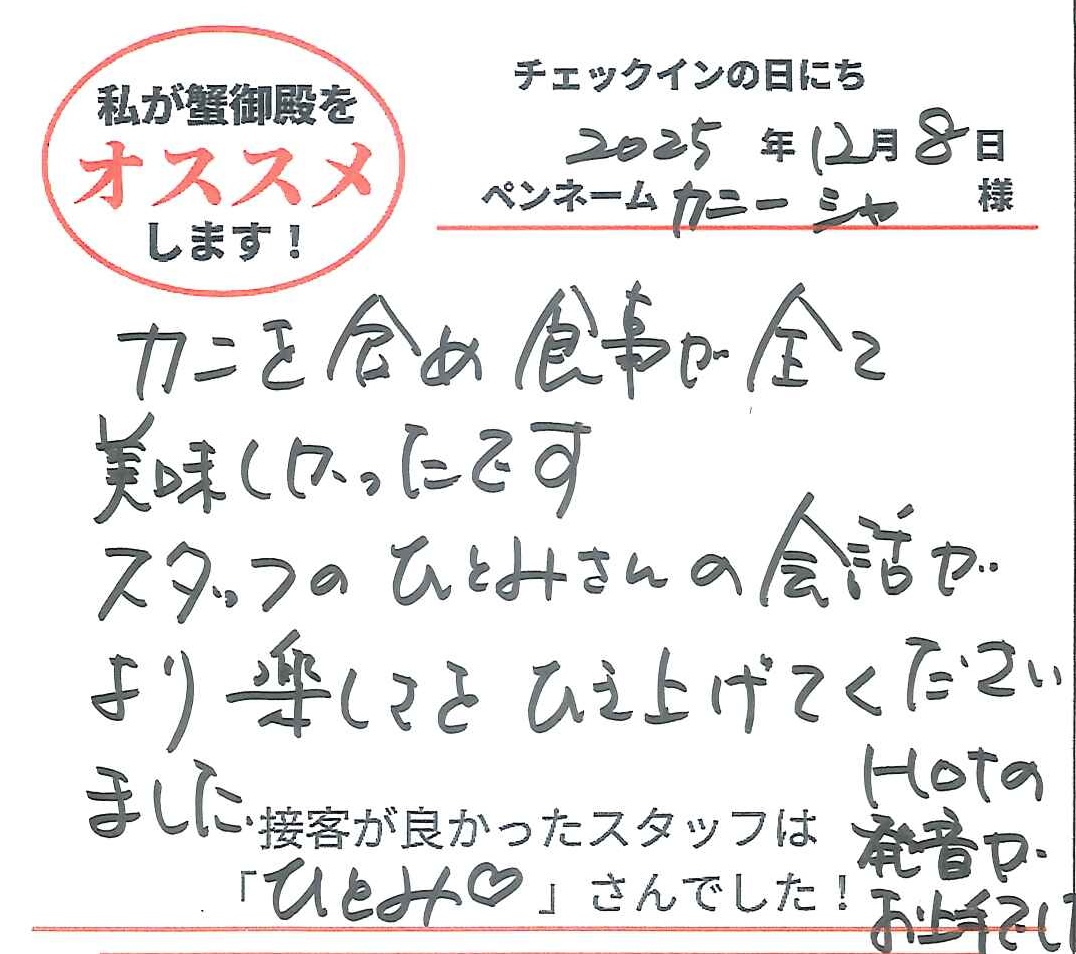 私が蟹御殿を
オススメ
します！
チェックインの日にち
2025年12月8日
ペンネーム カニーシャ 様
カニを含め食事が全て
美味しかったです
スタッフのひとみさんの会話が
より楽しさをひき上げてください
ました。
接客が良かったスタッフは
「ひとみ♡」さんでした！
Hotの
発音が
お上手でし